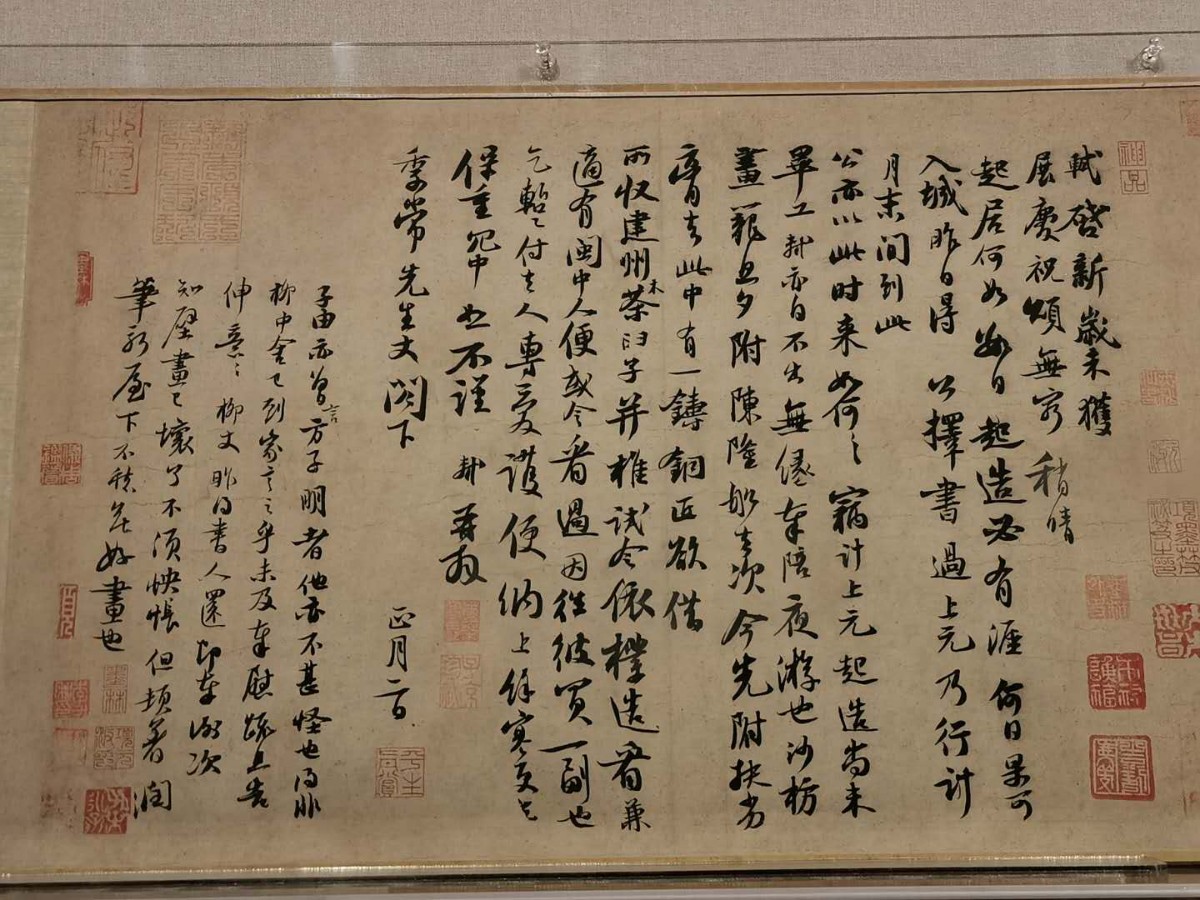 軾啓新歲未獲
展慶祝頌無窮稍晴
起居何如數日起造必有涯何日果可
入城昨日得公擇書過上元乃行計
月末間到此
公亦以此時来如何々竊計上元起造尚未
畢工軾亦自不出無緣奉陪夜游也沙枋
畫籠旦夕附陳隆船去次今先附扶劣
膏去此中有一鑄銅匠欲借
所收建州木茶臼子并椎試令依樣造看兼
適有閩中人便或令看過因往彼買一副也
乞暫付去人專愛護便納上餘寒更乞
保重冗中恕不謹軾再拜
季常先生丈閣下
正月二日
子由亦曾言方子明者他亦不甚怪也得非
柳中舍已到家言之乎未及奉慰疏且告
伸意々柳丈昨得書人還即奉謝次
知壁畫已壞了不須怏悵但頓著潤
筆新屋下不愁無好畫也
神品